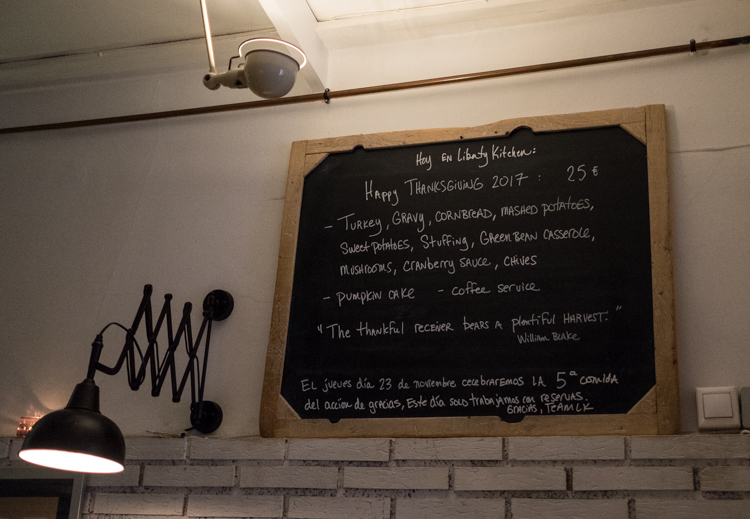 Hoy EN Liberty Kitchen:
Happy THANKSGIVING 2017: 25 €
- Turkey, GRAVY, CORNBREAD, MASHED POTATOES,
Sweet POTATOES, Stuffing, GREEN BEAN CASSEROLE,
MUSHROOMS, CRANBERRY SAUCE, CHIVES
- PUMPKIN CAKE - COFFEE SERVICE
"The thankful receiver bears a plentiful HARVEST."
William Blake
EL jueves día 23 de noviembre celebraremos LA 5ª comida
del acción de gracias, Este día solo trabajamos con reservas.
GRACIAS, TEAM LK